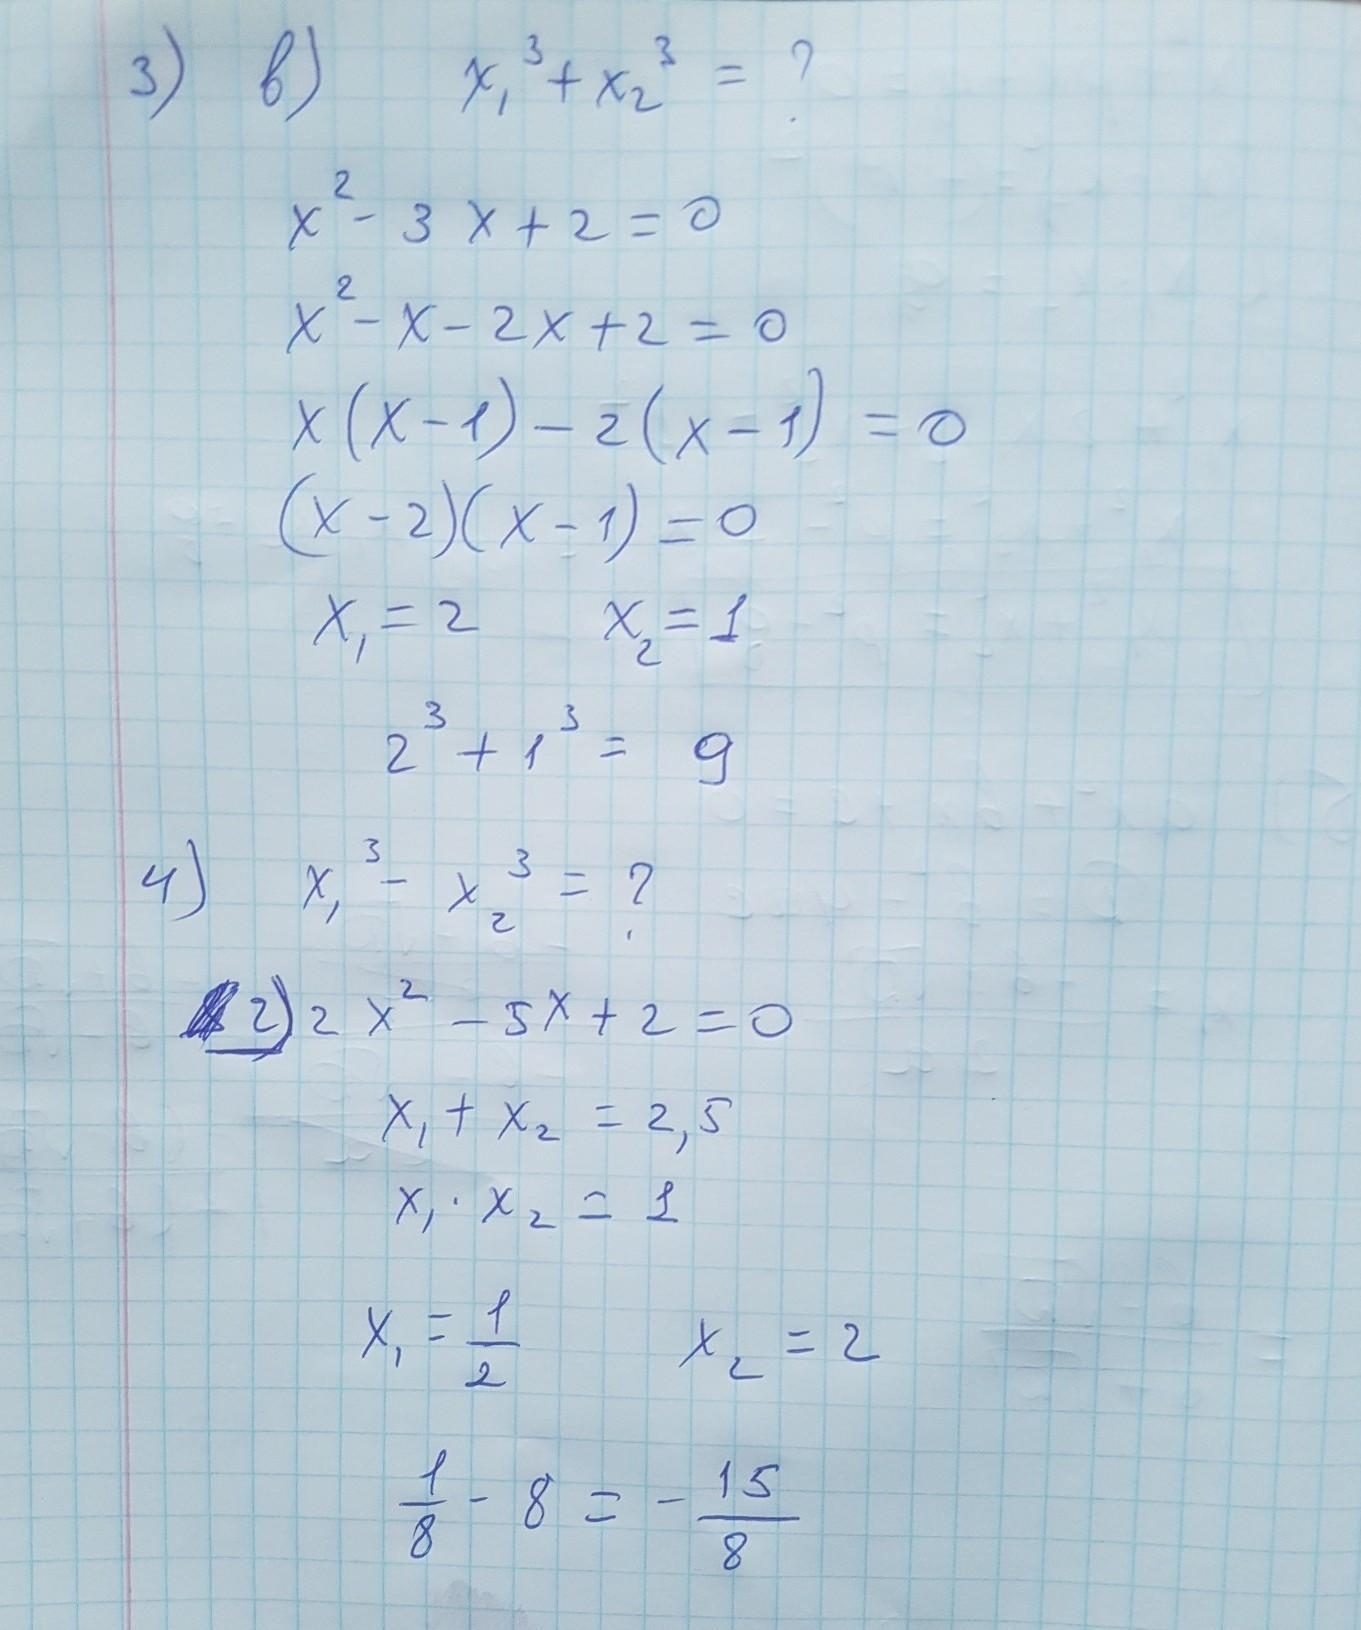 3) в) x₁³ + x₂³ = ?
x² - 3x + 2 = 0
x² - x - 2x + 2 = 0
x(x - 1) - 2(x - 1) = 0
(x - 2)(x - 1) = 0
x₁ = 2 x₂ = 1
2³ + 1³ = 9
4) x₁³ - x₂³ = ?
2) 2x² - 5x + 2 = 0
x₁ + x₂ = 2,5
x₁ · x₂ = 1
x₁ = 1/2 x₂ = 2
1/8 - 8 = - 15/8